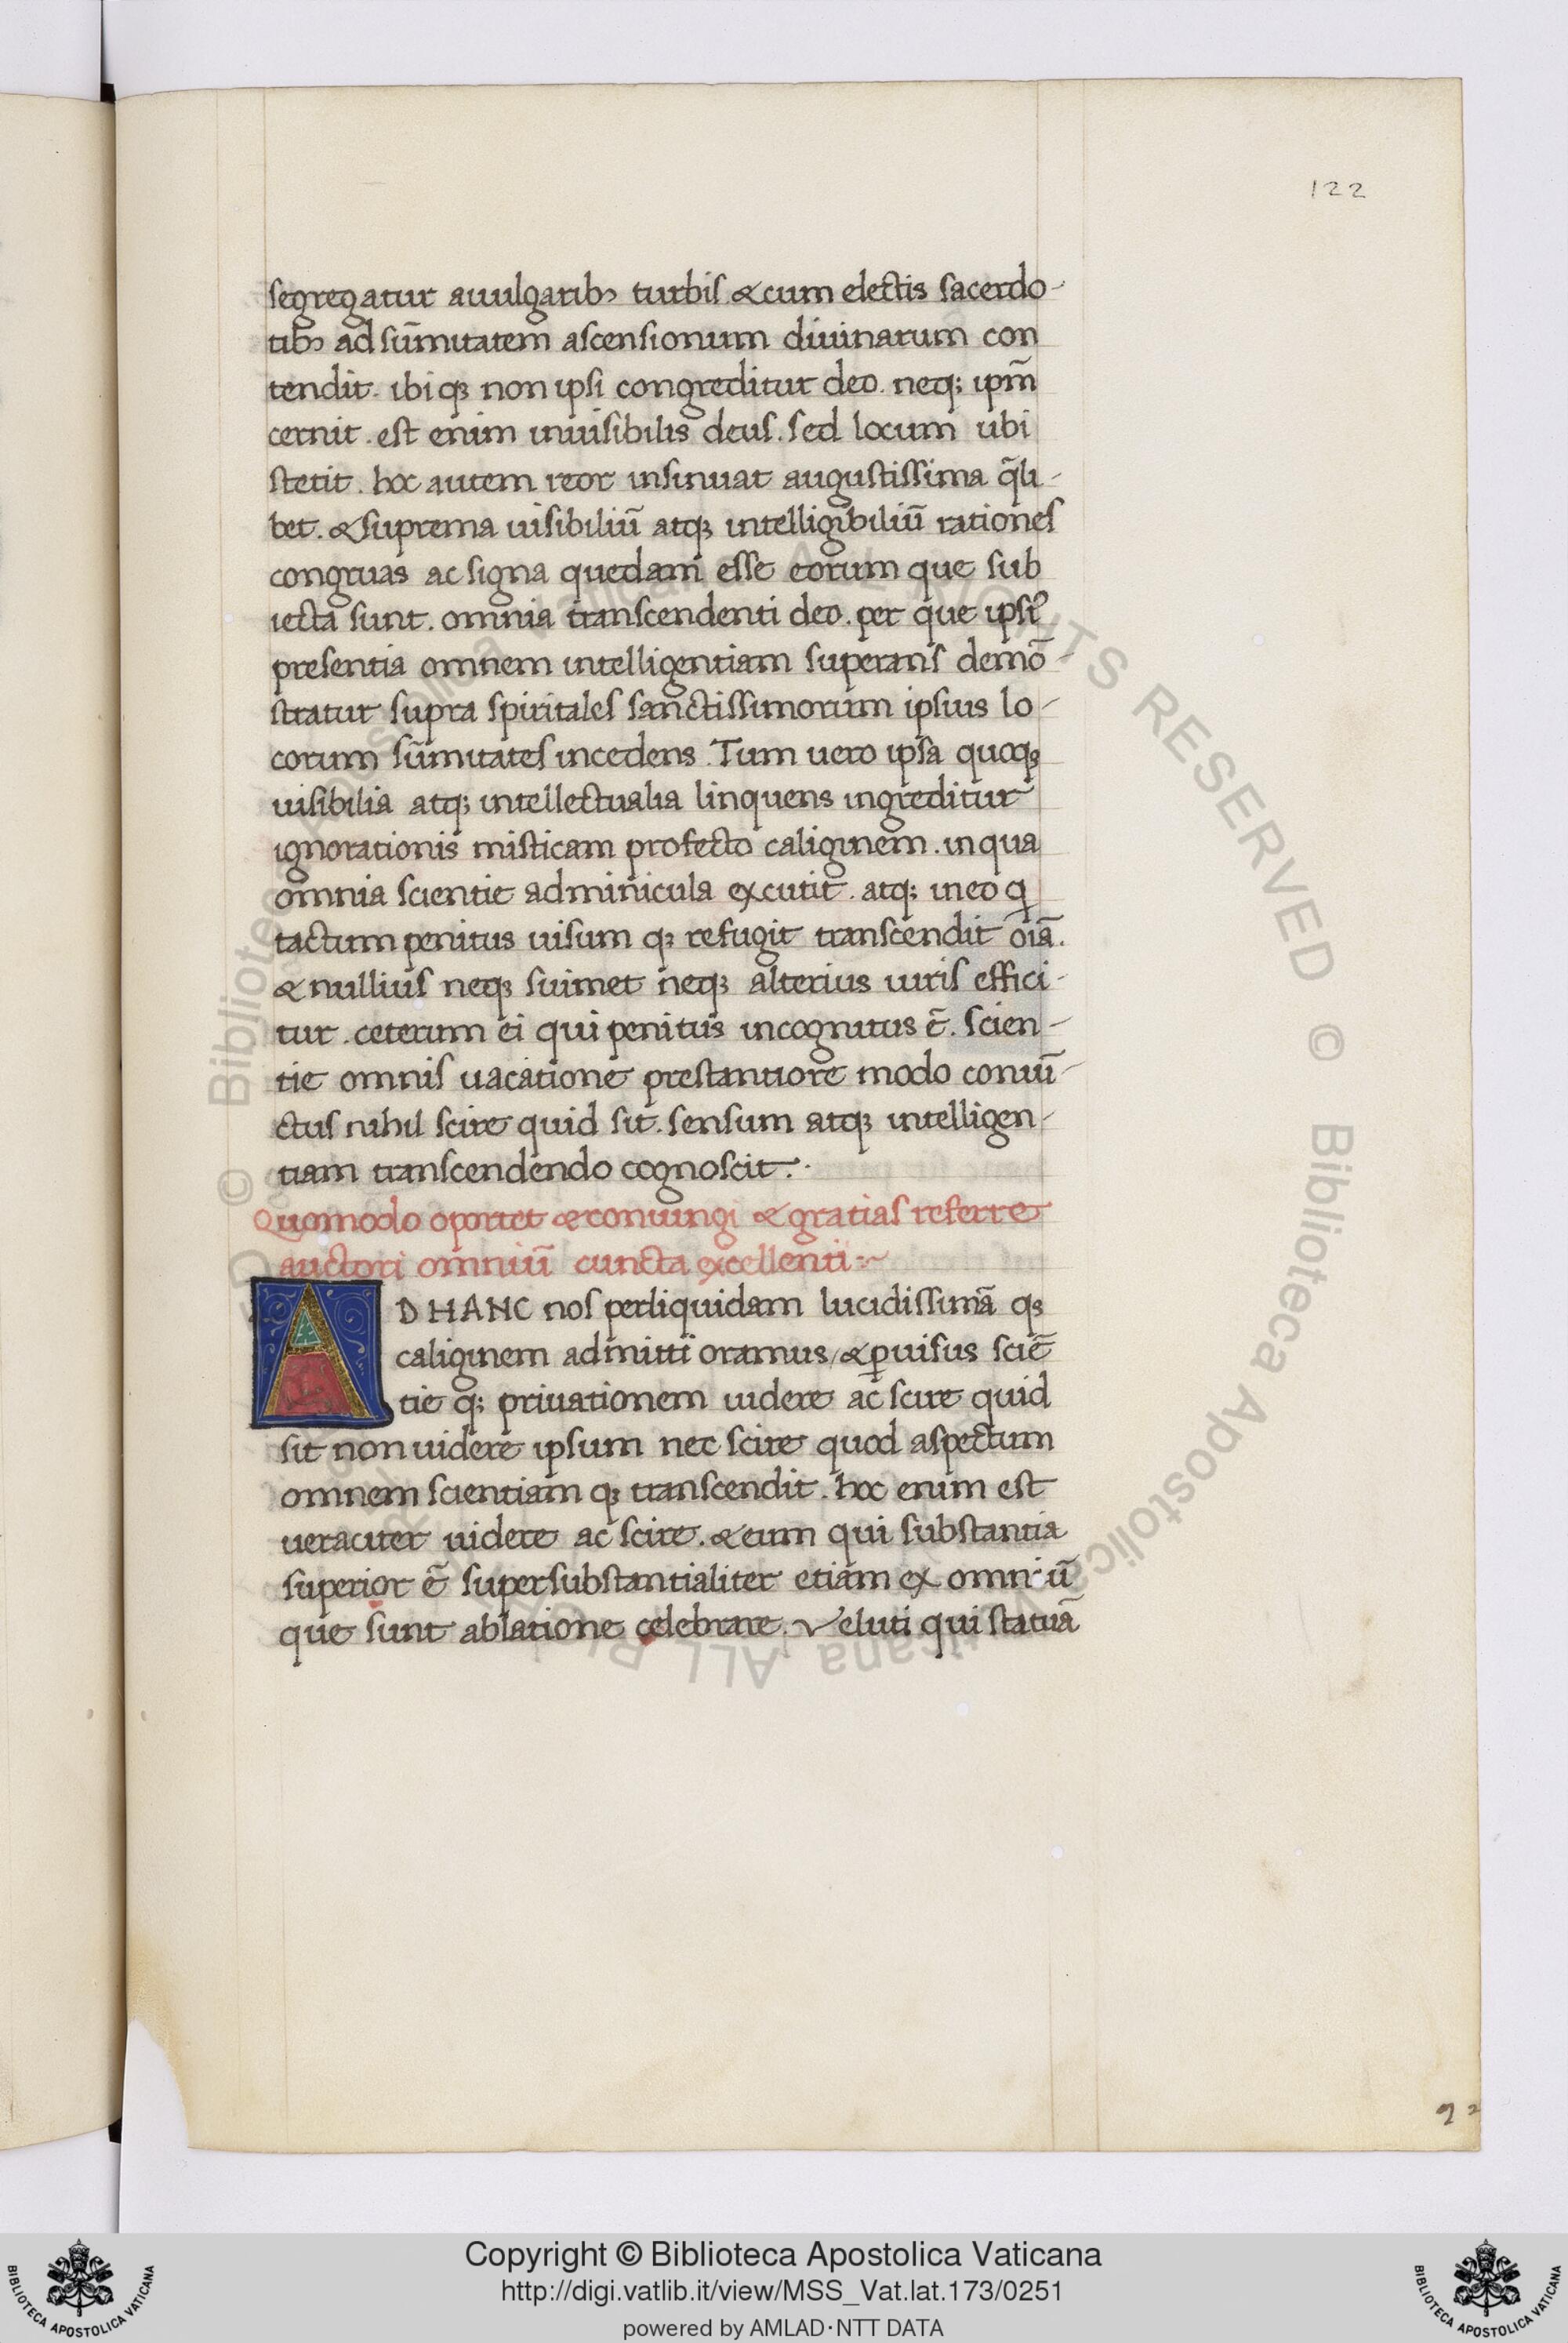 122
segregatur auulgaribꝫ turbis &cum electis sacerdo-
tibꝫ ad sūmitatem ascensionum diuinarum con
tendit. ibi qꝫ non ipsi congreditur deo. neqꝫ ipm̄
cernit. est enim inuisibilis deus. sed locum ubi
stetit. hoc autem reor insinuat augustissima q̄li-
bet. & suprema uisibiliū atqꝫ intelligibiliū rationes
congruas ac signa quedam esse eorum que sub
iecta sunt. omnia transcendenti deo. per que ipsiꝰ
presentia omnem intelligentiam superans demō-
stratur supra spiritales sanctissimorum ipsius lo-
corum sūmitates incedens. Tum uero ipsa quoqꝫ
uisibilia atqꝫ intellectualia linquens ingreditur
ignorationis misticam profecto caliginem. inqua
omnia scientie adminicula excutit. atqꝫ ineo q
tactum penitus uisum qꝫ refugit transcendit oīā.
& nullius neqꝫ suimet neqꝫ alterius iuris effici-
tur. ceterum ei qui penitus incognitus ē. scien-
tie omnis uacatione prestantiore modo coniū-
ctus nihil scire quid sit. sensum atqꝫ intelligen-
tiam transcendendo cognoscit.
Quomodo oportet &coniungi & gratias referre
auctori omniū cuncta excellenti:~
AD HANC nos perliquidam lucidissimā qꝫ
caliginem admitti oramus/ &ꝑuisus sciē
tie qꝫ priuationem uidere ac scire quid
sit non uidere ipsum nec scire quod aspectum
omnem scientiam qꝫ transcendit. hoc enim est
ueraciter uidere ac scire. & eum qui substantia
superior ē supersubstantialiter etiam ex omniū
que sunt ablatione celebrare. Veluti qui statuā
92
Copyright © Biblioteca Apostolica Vaticana
http://digi.vatlib.it/view/MSS_Vat.lat.173/0251
powered by AMLAD·NTT DATA
BIBLIOTECA APOSTOLICA VATICANA
BIBLIOTECA APOSTOLICA VATICANA